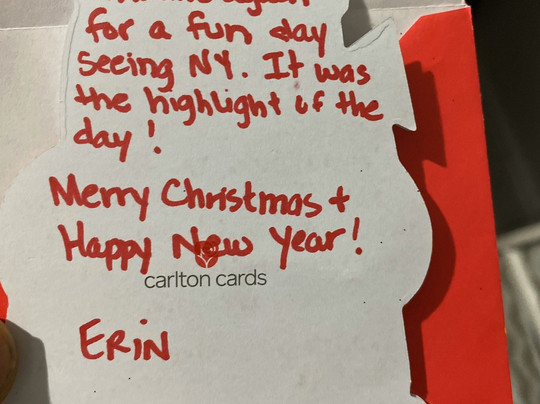 for a fun day
seeing NY. It was
the highlight of the
day!
Merry Christmas +
Happy New Year!
carlton cards
ERIN